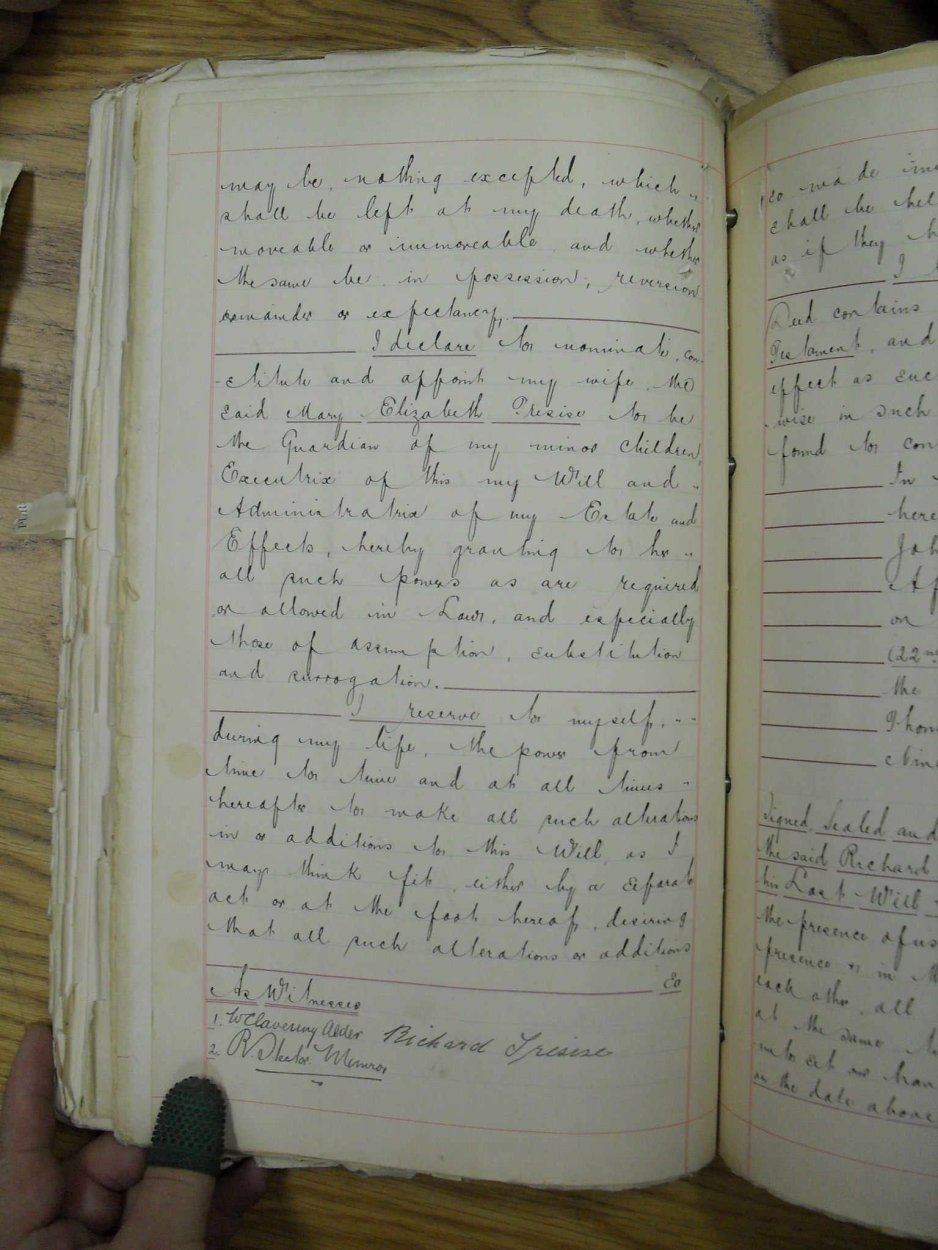 may be, nothing excepted, which "
shall be left at my death, whether
moveable or immoveable and whether
the same be in possession, reversion
remainder or expectancy.
I declare to nominate, con-
-stitute and appoint my wife, the
said Mary Elizabeth Tresise to be
the Guardian of my minor children,
Executrix of this my Will and "
Administratrix of my Estate and
Effects, hereby granting to her "
all such powers as are required
or allowed in Law, and especially
those of assumption, substitution
and surrogation.
I reserve to myself, "
during my life, the power from
time to time and at all times "
hereafter to make all such alterations
in or additions to this Will, as I
may think fit, either by a separate
act or at the foot hereof, desiring
that all such alterations or additions
so
As Witnesses
1. W Clavering Alder
2. R Munro
Richard Tresise
so made
shall be
as if they
I
Deed contains
Testament, and
effect as
wise in such
found to
In
here

on
(22nd
the
Thou
Nin
Signed, Sealed and
the said Richard
his Last Will
the presence of us
presence & in
each other, all
at the same
on the date above